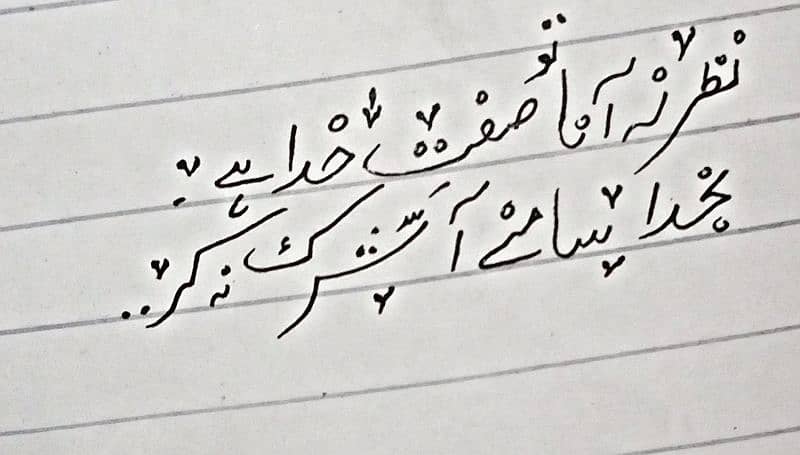 نظر نہ آنا تو صفتِ خدا ہے؛
بخدا سامنے آ شرک نہ کر..